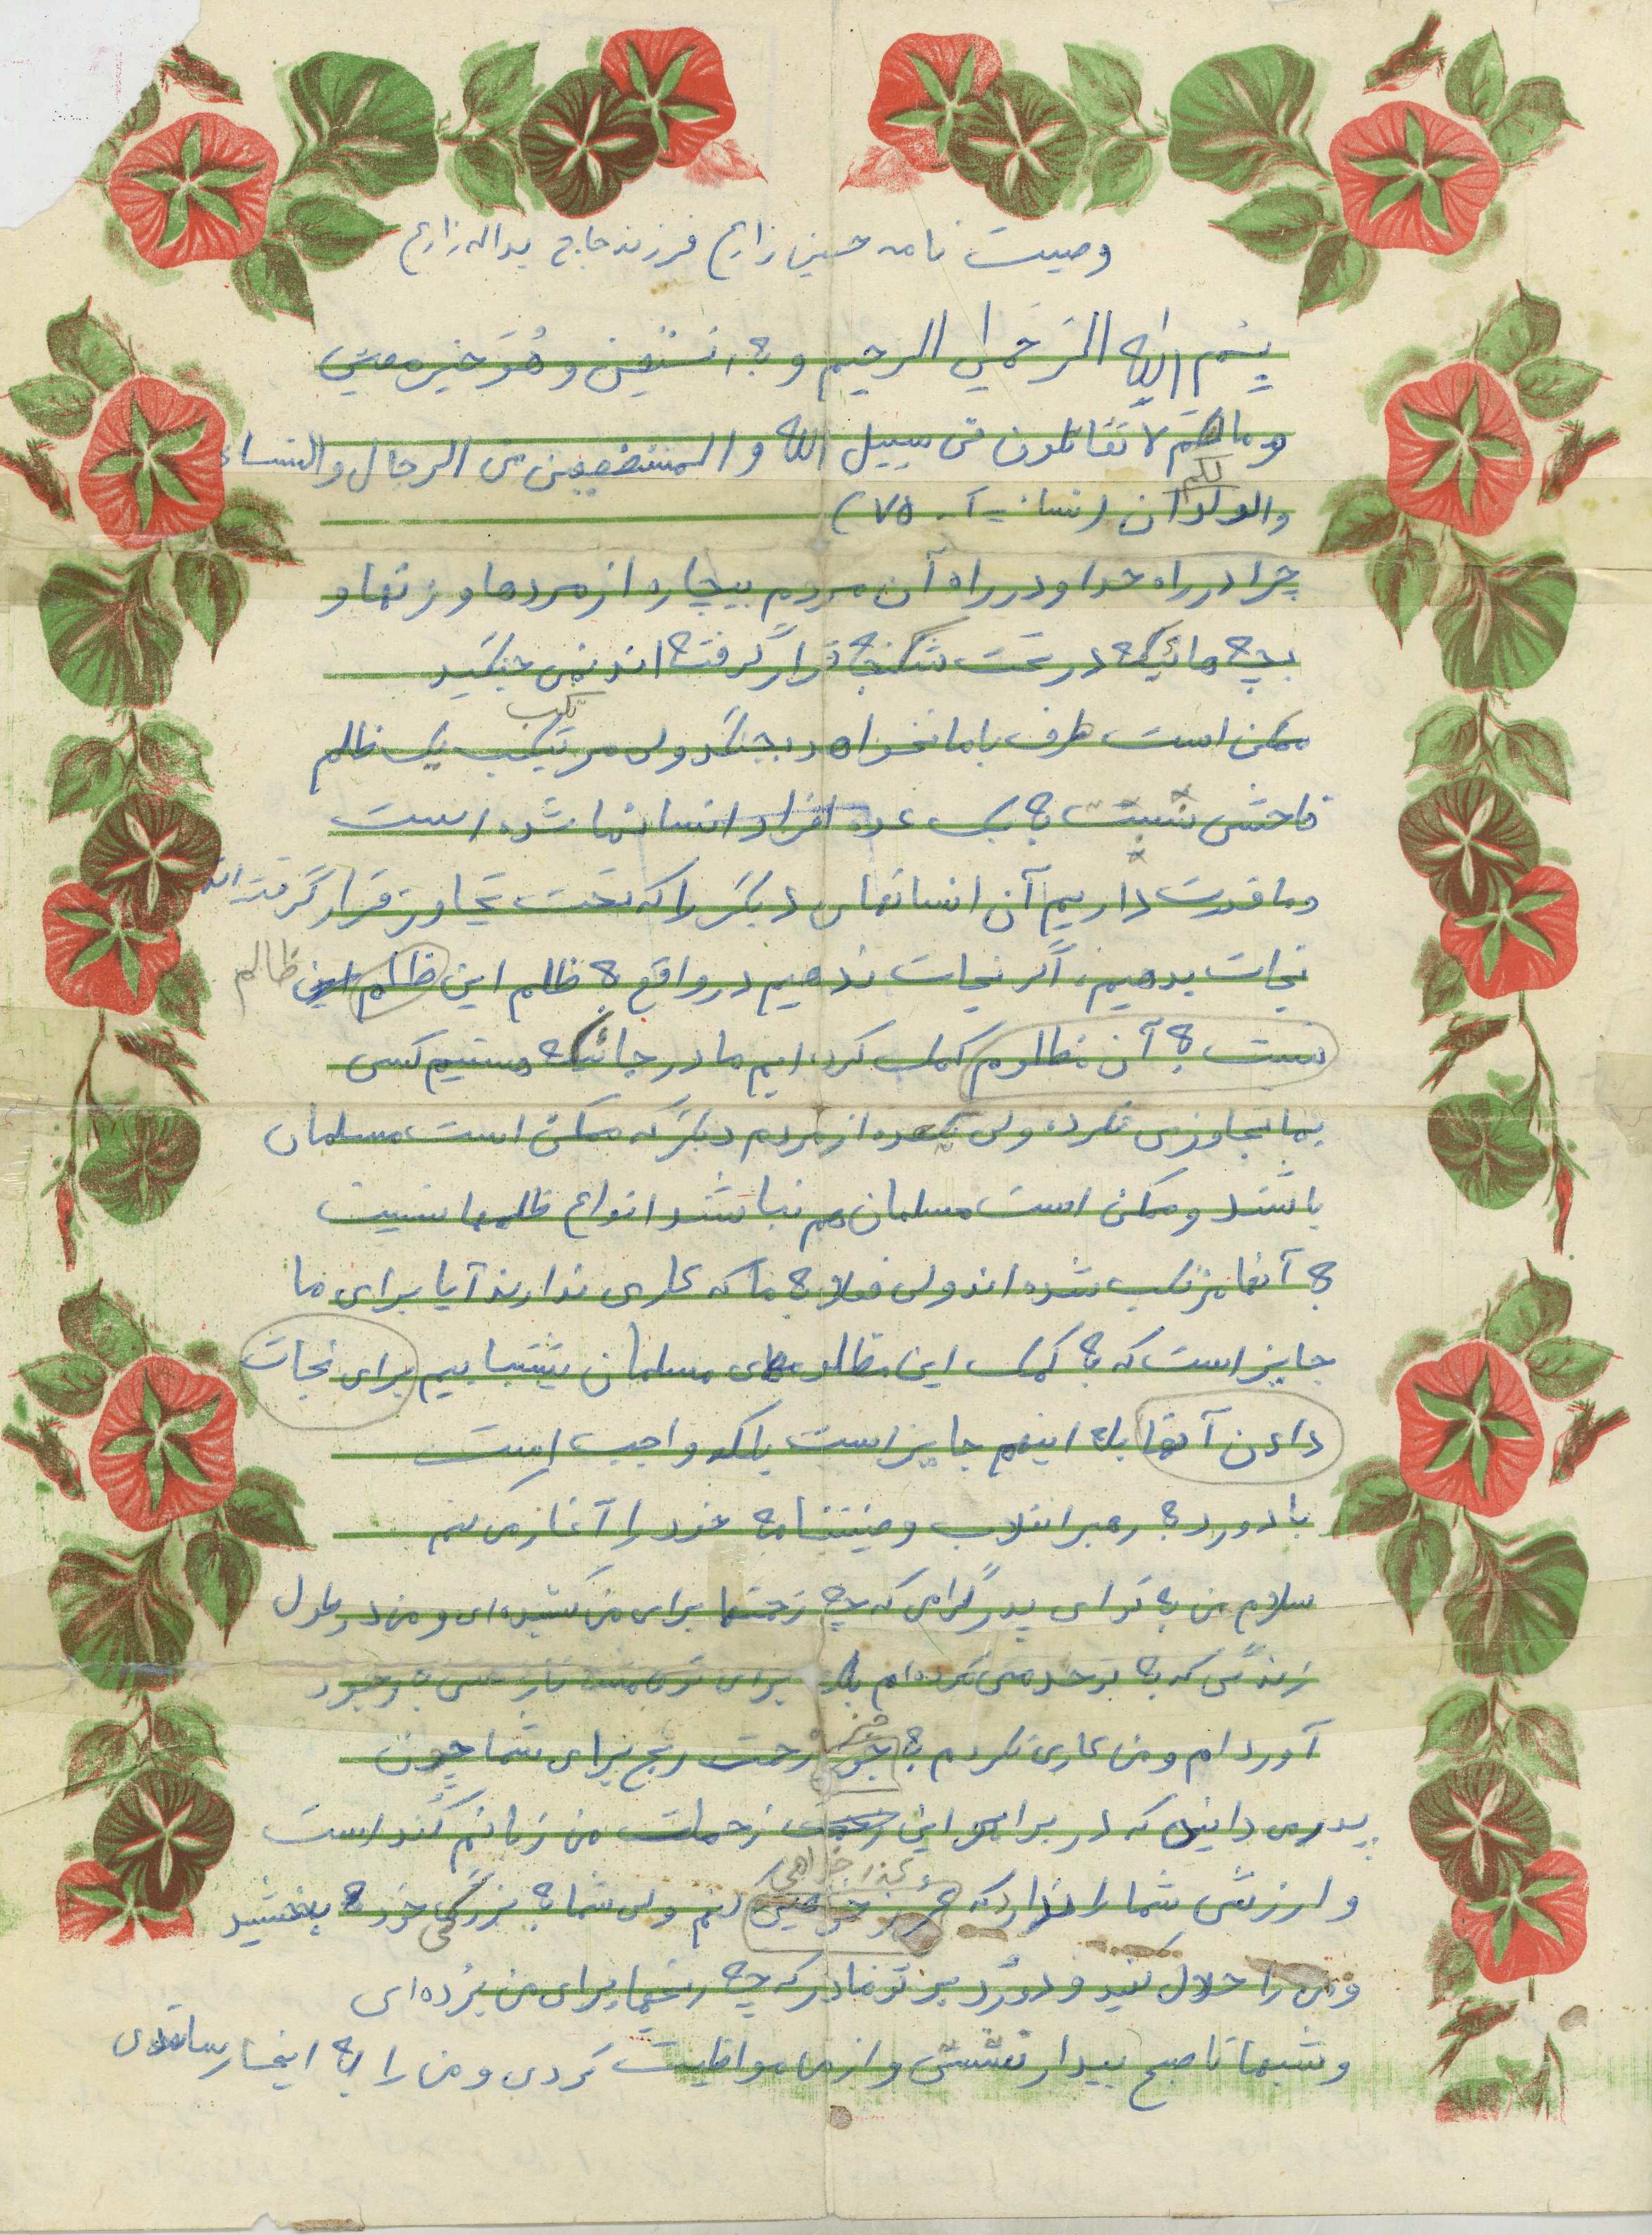 وصیت نامه حسین زارع فرزند حاج یداله زارع
بِسْمِ اللهِ الرَّحْمنِ الرحیم و به نستعین و هُوَ خَیر معین
و مالکم لا تقاتلون فی سبیل الله و المستضعفین من الرجال و النساء
لکم
والولدان (نساء - آ - ۷۵)
چرا در راه خدا و در راه آن مردم بیچاره از مردها و زنها و
بچه هائیکه در تحت شکنجه قرار گرفته اند نمی جنگید
تکب
ممکن است طرف با ما نخواهد بجنگد ولی مرتکب یک ظلم
فاحش نسبت به یک عده افراد انسانها شده است
و ما قدرت داریم آن انسانهای دیگر را که تحت تجاوز قرار گرفته اند
نجات بدهیم، اگر نجات ندهیم در واقع به ظلم این ظالم این ظالم
نسبت به آن مظلوم کمک کرده ایم ما در جائیکه هستیم کسی
بما تجاوزی نکرده ولی یکعده از مردم دیگر که ممکن است مسلمان
باشند و ممکن است مسلمان هم نباشند انواع ظلمها نسبت
به آنها مرتکب شده اند ولی فعلا به ما که کاری ندارند آیا برای ما
جایز است که به کمک این مظلومهای مسلمان بشتابیم برای نجات
دادن آنها بله اینهم جایز است بلکه واجب است
با درود به رهبر انقلاب وصیتنامه خود را آغاز می کنم
سلام من به تو ای پدر گرامی که چه زحمتها برای من کشیده ای و من در طول
زندگی که به تو خدمتی نکرده ام برای تو به وجود
آورده ام و من کاری نکردم به جز زحمت رنج برای شما چون
پدر می دانید که در برابر این زحمت زحمات من زبانم کند است
عذر خواهی
و ارزش شما را ندارد که کنم ولی شما به بزرگی خود به بخشید
و من را حلال کنید و درود بر تو مادر که چه رنجها برای من برده ای
و شبها تا صبح بیدار نشستی و از من مواظبت کردی و من را به اینجا رساندی